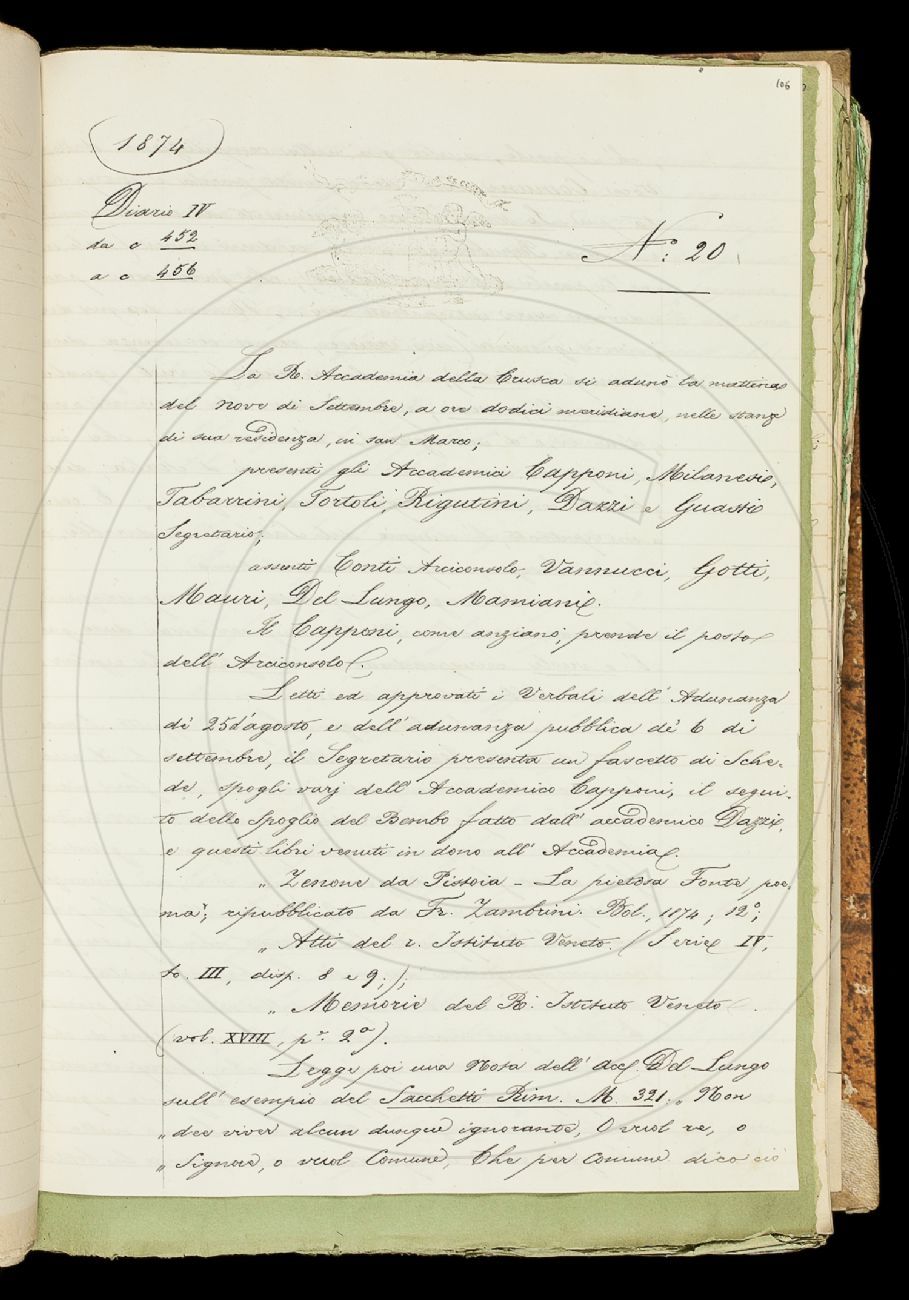 106
1874
Diario IV
da c 452
a c 456
N.° 20
La R. Accademia della Crusca si adunò la mattina
del nove di Settembre, a ore dodici meridiane, nelle stanze
di sua residenza, in san Marco;
presenti gli Accademici Capponi, Milanesi,
Tabarrini, Tortoli, Rigutini, Dazzi e Guasti
Segretario;
assenti Conti Arciconsolo, Vannucci, Gotti,
Mauri, Del Lungo, Mamiani.
Il Capponi, come anziano, prende il posto
dell' Arciconsolo.
Letti ed approvati i Verbali dell' Adunanza
de' 25 d'agosto, e dell' adunanza pubblica de' 6 di
settembre, il Segretario presenta un fascetto di Sche-
de, spogli varj dell' Accademico Capponi, il segui-
to dello Spoglio del Bembo fatto dall' accademico Dazzi,
e questi libri venuti in dono all' Accademia.
„ Zenone da Pistoia - La pietosa Fonte, poe-
ma; ripubblicato da Fr. Zambrini. Bol., 1874; 12°;
„ Atti del r. Istituto Veneto. (Serie IV,
to. III, disp. 8 e 9;);
„ Memorie del R. Istituto Veneto
(vol. XVIII, p.e 2a).
Legge poi una Nota dell' Acc. Del Lungo
sull' esempio del Sacchetti Rim. M. 321: „ Non
„ dee viver alcun dunque ignorante, O vuol re, o
„ Signore, o vuol Comune, Che per Comune dico ciò